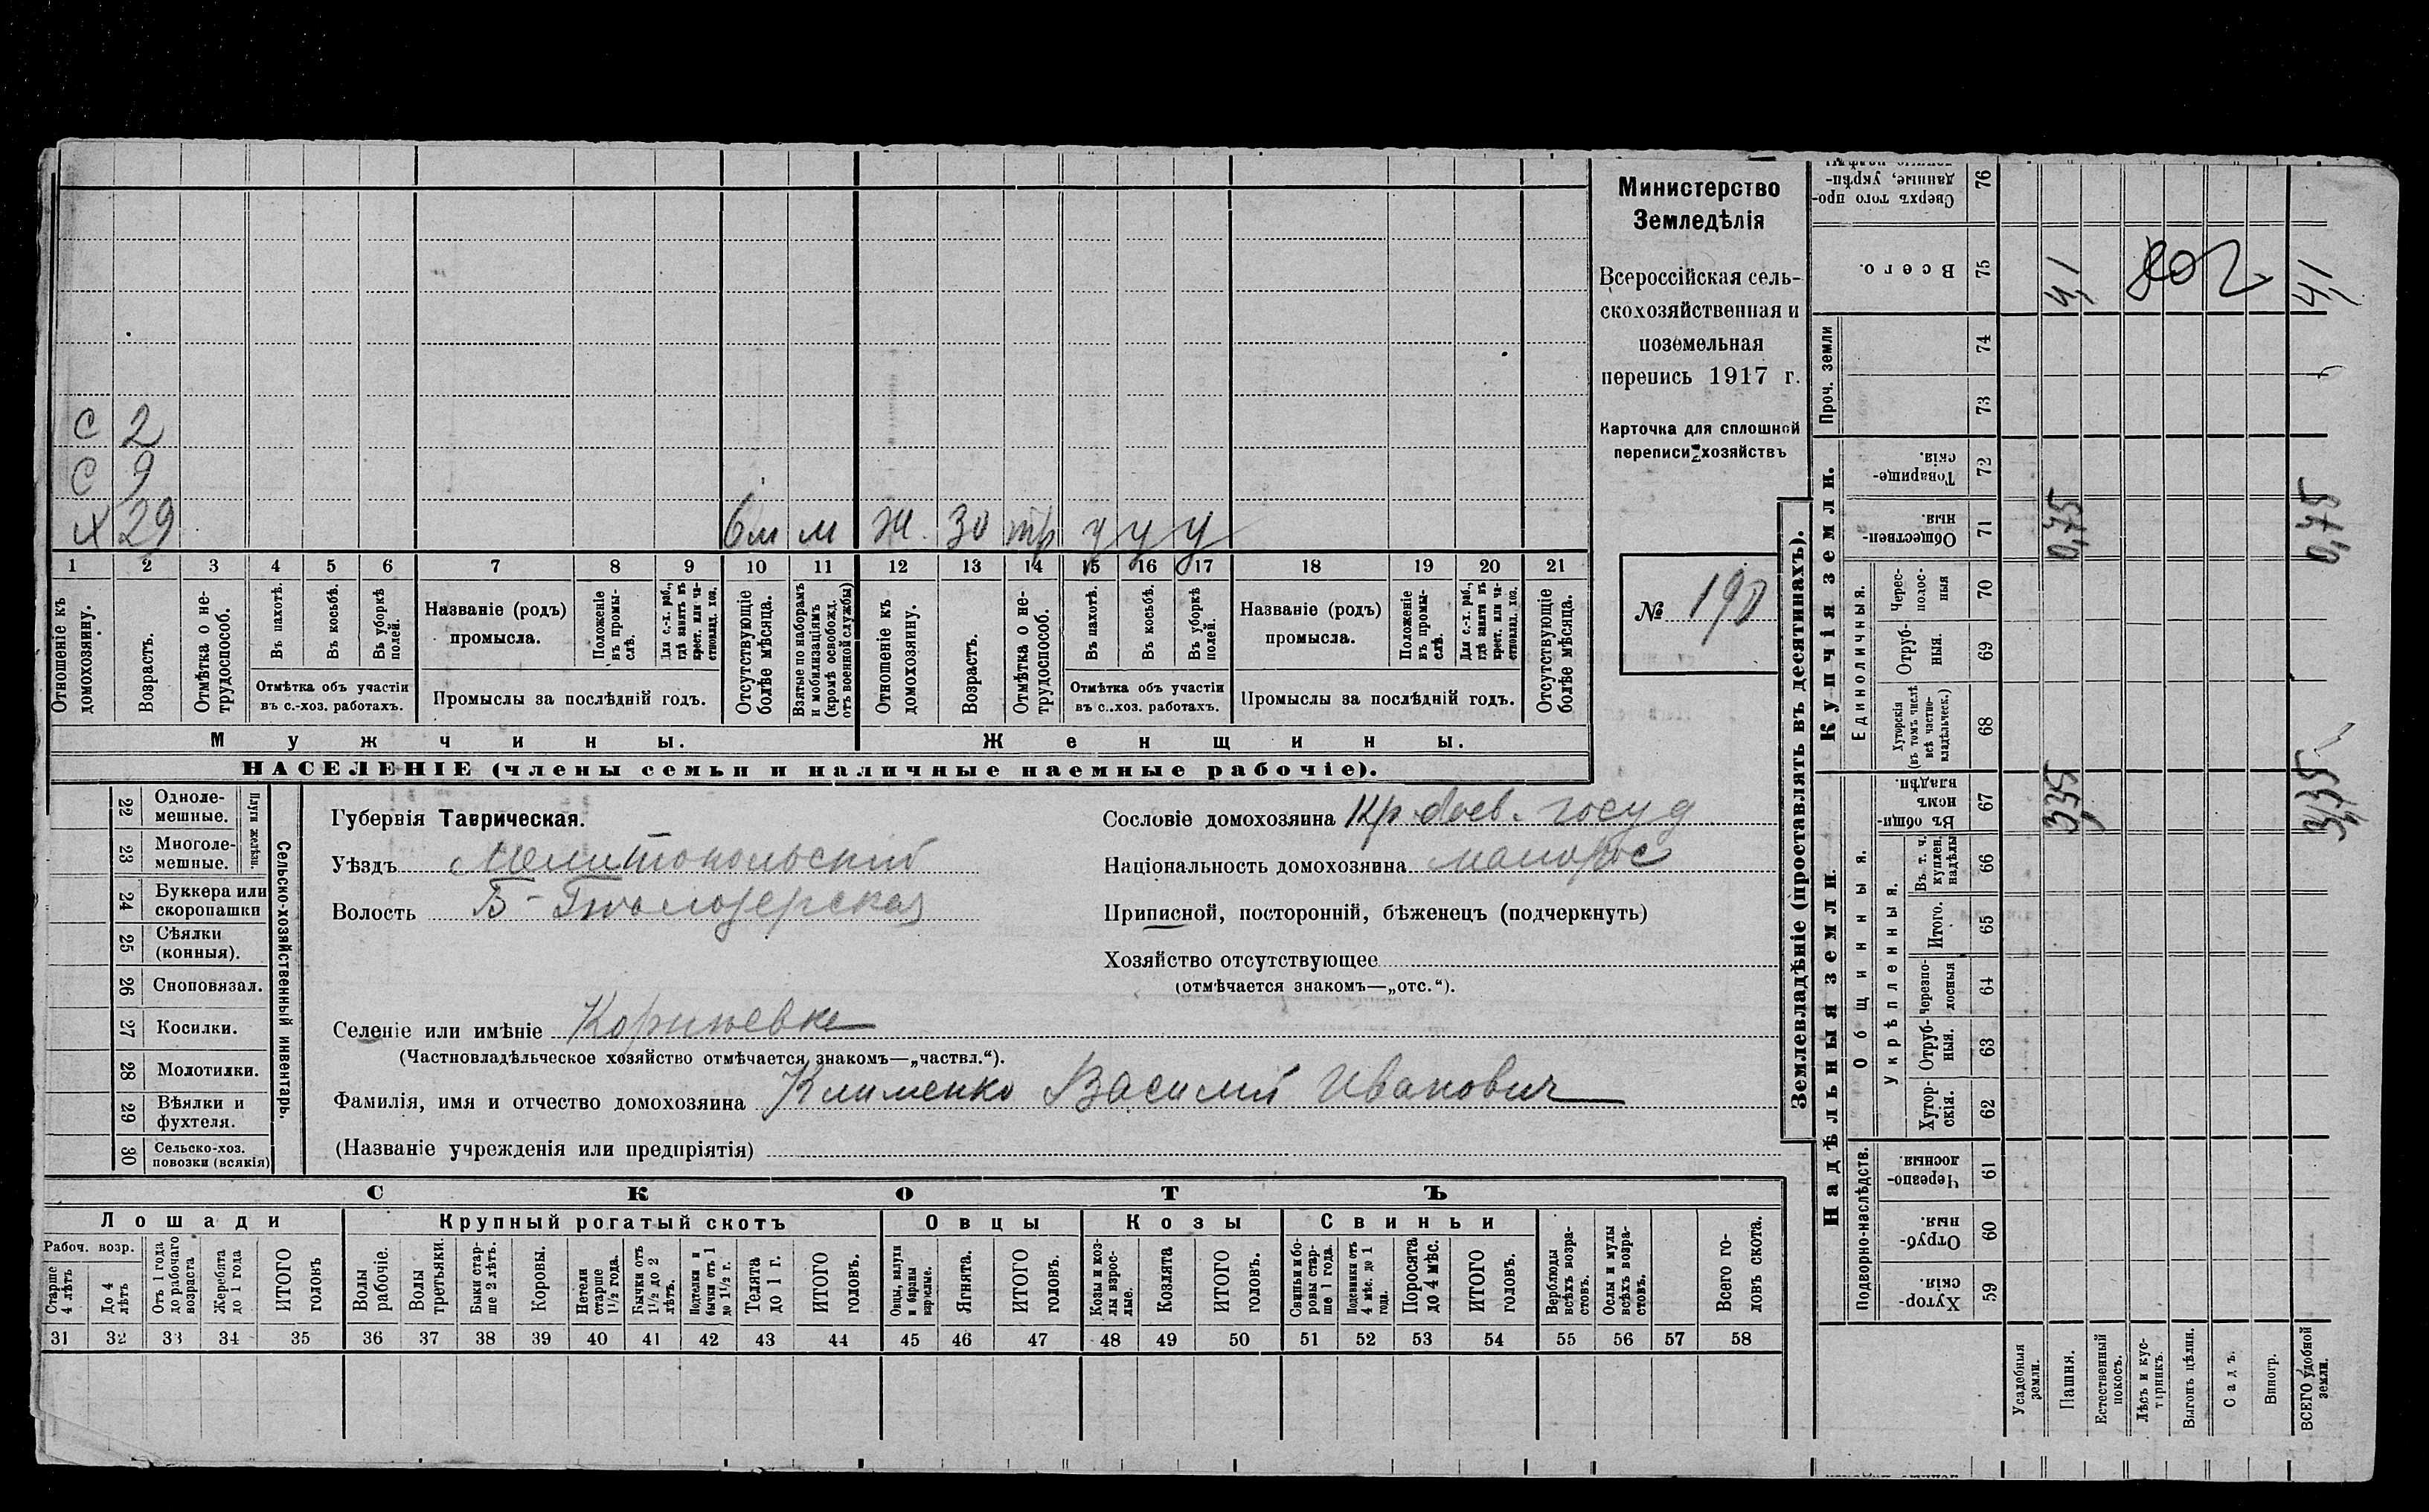 с 2
с 9
х 29 6м м ж. 30 тр у у у
1 2 3 4 5 6 7 8 9 10 11 12 13 14 15 16 17 18 19 20 21
Отношеніе къ домохозяину.
Возрастъ.
Отмѣтка о не-трудоспособ.
Въ пахотѣ.
Въ косьбѣ.
Въ уборкѣ полей.
Отмѣтка объ участіи
въ с.-хоз. работахъ.
Названіе (родъ)
промысла.
Положеніе въ промы-слѣ.
Для с.-х. раб., гдѣ занятъ въ крест. или ча-стновлад. хоз.
Промыслы за послѣдній годъ.
Отсутствующіе болѣе мѣсяца.
Взятые по наборамъ и мобилизаціямъ (кромѣ освобожд. отъ военной службы)
Отношеніе къ домохозяину.
Возрастъ.
Отмѣтка о не-трудоспособ.
Въ пахотѣ.
Въ косьбѣ.
Въ уборкѣ полей.
Отмѣтка объ участіи
въ с.-хоз. работахъ.
Названіе (родъ)
промысла.
Положеніе въ промы-слѣ.
Для с.-х. раб., гдѣ занята въ крест. или ча-стновлад. хоз.
Промыслы за послѣдній годъ.
Отсутствующіе болѣе мѣсяца.
Мужчины. Женщины.
НАСЕЛЕНІЕ (члены семьи и наличные наемные рабочіе).
Министерство
Земледѣлія
Всероссійская сель-
скохозяйственная и
поземельная
перепись 1917 г.
Карточка для сплошной
переписи хозяйствъ
№ 190
22 Одноле-мешные.
23 Многоле-мешные.
Плуги желѣзн.
24 Буккера или скоропашки
25 Сѣялки (конныя).
26 Сноповязал.
27 Косилки.
28 Молотилки.
29 Вѣялки и фухтеля.
30 Сельско-хоз. повозки (всякія)
Сельско-хозяйственный инвентарь.
Губернія Таврическая.
Уѣздъ Мелитопольский
Волость Б-Бѣлозерская
Селеніе или имѣніе
(Частновладѣльческое хозяйство отмѣчается знакомъ—„частвл.“).
Фамилія, имя и отчество домохозяина Клименко Василий Иванович
(Названіе учрежденія или предпріятія)
Сословіе домохозяина Кр. госуд
Національность домохозяина малорос
Приписной, посторонній, бѣженецъ (подчеркнуть)
Хозяйство отсутствующее
(отмѣчается знакомъ—„отс.“).
СКОТЪ
Лошади Крупный рогатый скотъ Овцы Козы Свиньи
Рабоч. возр.
Старше 4 лѣтъ
До 4 лѣтъ
Отъ 1 года до рабочаго возраста
Жеребята до 1 года
ИТОГО головъ
Волы рабочіе.
Волы третьяки.
Быки стар-ше 2 лѣтъ.
Коровы.
Нетели старше 1½ года.
Бычки отъ 1½ до 2 лѣтъ.
Подтелки и бычки отъ 1 до 1½ г.
Телята до 1 г.
ИТОГО головъ.
Овцы, валухи и бараны взрослые.
Ягнята.
ИТОГО головъ.
Козы и коз-лы взрос-лые.
Козлята
ИТОГО головъ.
Свиньи и бо-ровы стар-ше 1 года.
Подсвинки отъ 4 мѣс. до 1 года.
Поросята до 4 мѣс.
ИТОГО головъ.
Верблюды всѣхъ возра-стовъ.
Ослы и мулы всѣхъ возра-стовъ.
Всего го-ловъ скота.
31 32 33 34 35 36 37 38 39 40 41 42 43 44 45 46 47 48 49 50 51 52 53 54 55 56 57 58
Землевладѣніе (проставлять въ десятинахъ).
Надѣльныя земли. Купчія земли. Проч. земли
Подворно-наслѣдств.
Общинныя.
Укрѣпленныя.
Единоличныя.
Хутор-скія. 59
Отруб-ныя. 60
Черезпо-лосныя 61
Хутор-скія. 62
Отруб-ныя. 63
Черезпо-лосныя 64
Итого. 65
Въ т. ч. куплен. надѣлы 66
Въ общин-номъ владѣн. 67
Хуторскія (въ томъ числѣ всѣ частно-владѣльческ.) 68
Отруб-ныя. 69
Черес-полос-ныя 70
Обществен-ныя. 71
Товарище-скія. 72
73
74
Всего. 75
Сверхъ того про-данные, укрѣп- 76
Усадебныя земли.
Пашня. 3,35 0,75 4,1
Естественный покосъ.
Лѣсъ и кус-тарникъ.
Выгонъ цѣлин.
Садъ.
Виногр.
ВСЕГО удобной земли. 3,35 0,75 4,1
802